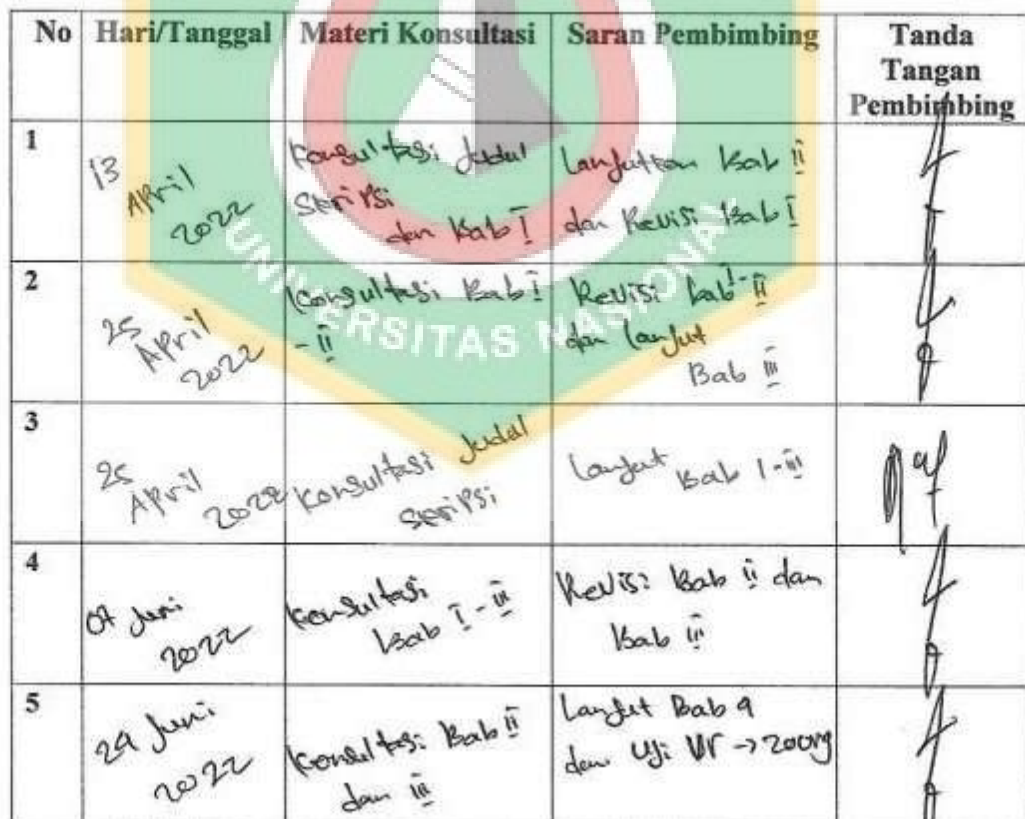 No Hari/Tanggal Materi Konsultasi Saran Pembimbing Tanda
Tangan
Pembimbing
1
13
April
2022
Konsultasi Judul
Skripsi
dan Bab I
Lanjutkan Bab II
dan Revisi Bab I
2
25
April
2022
Konsultasi Bab I
- II
Revisi Bab I - II
dan lanjut
Bab III
3
25
April
2022
Konsultasi Judul
Skripsi
Lanjut Bab I - III
4
07 Juni
2022
Konsultasi
Bab I - III
Revisi Bab II dan
Bab III
5
24 Juni
2022
Konsultasi Bab II
dan III
Lanjut Bab 4
dan Uji
UNIVERSITAS NASIONAL